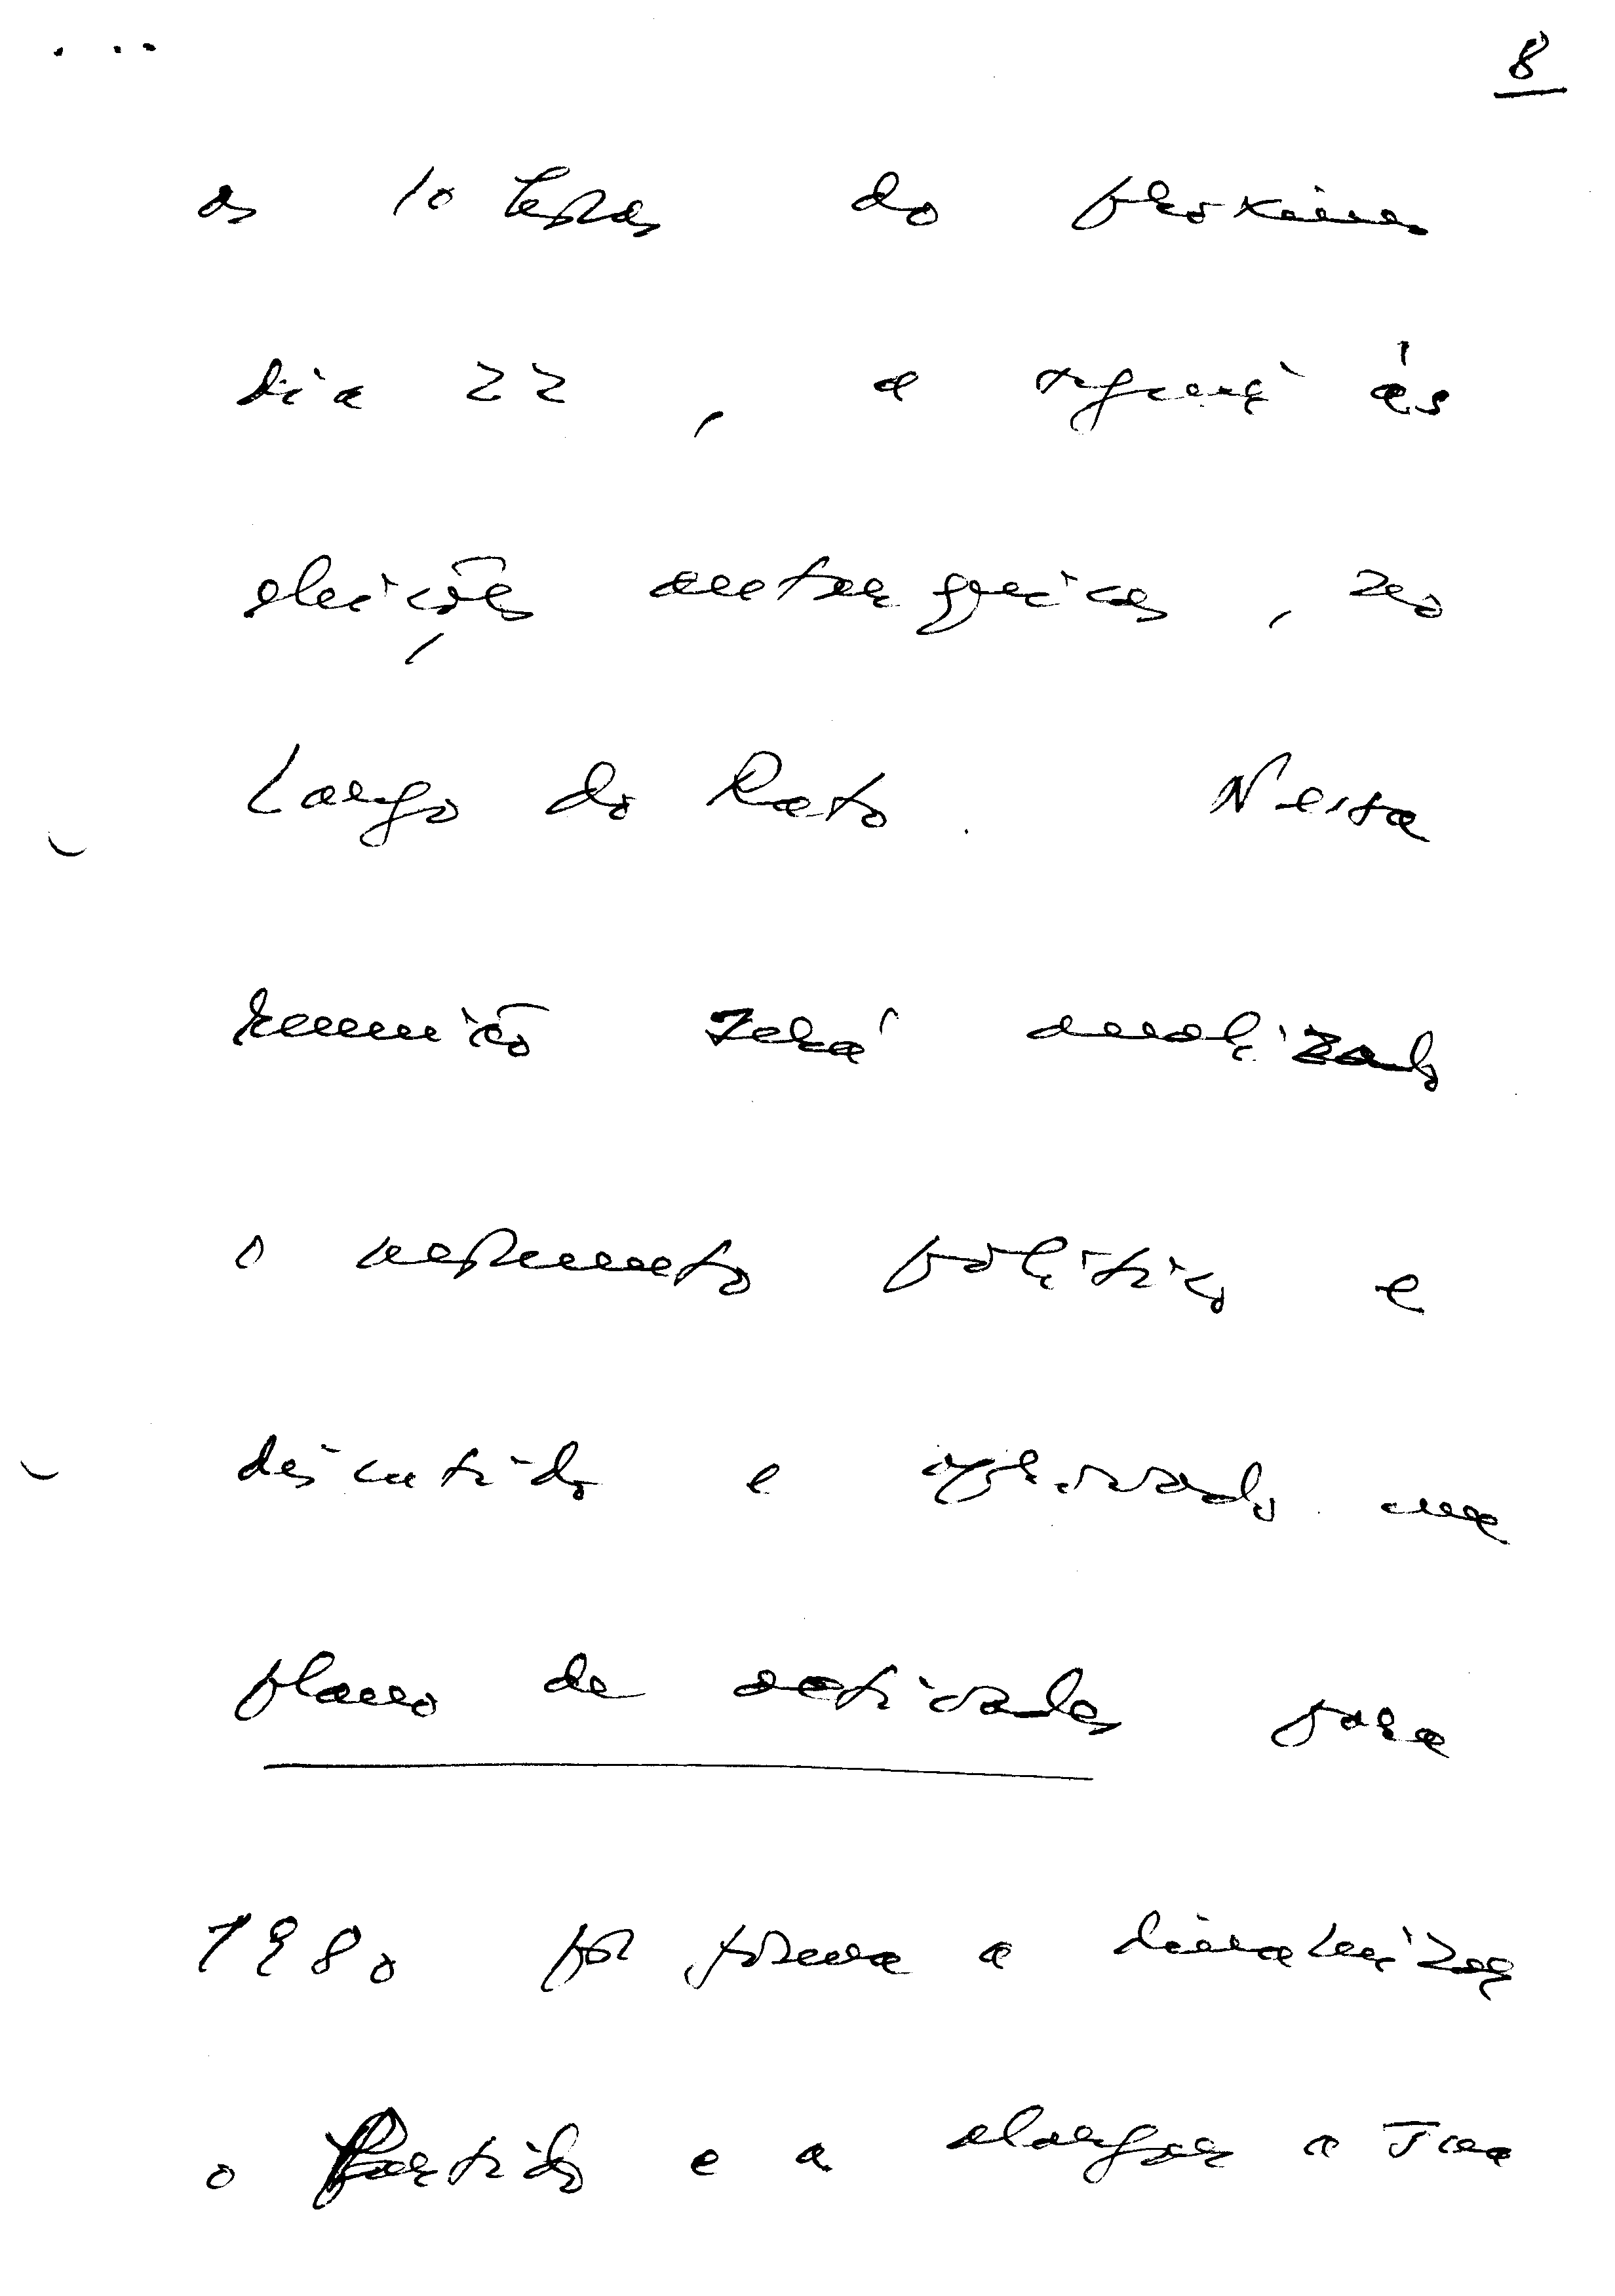 ... 8
as 10 horas do próximo
dia 22, a seguir às
eleições autárquicas, no
Largo do Rato. Nessa
reunião será analizado
o momento político e
discutido e aprovado um
plano de actividades para
1980 por forma a dinamizar
o Partido e a alargar a sua